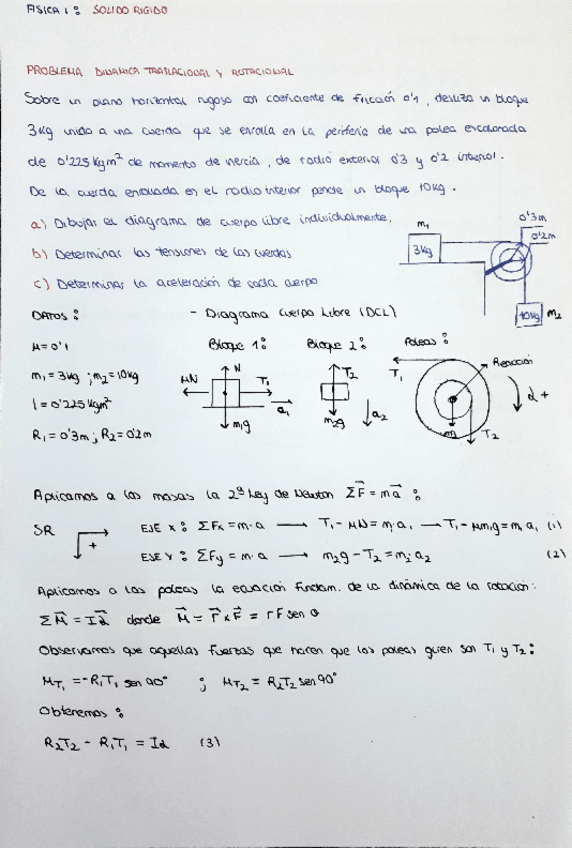 FISICA I: SOLIDO RIGIDO
PROBLEMA DINAMICA TRASLACIONAL Y ROTACIONAL
Sobre un plano horizontal rugoso con coeficiente de fricción 0'1, desliza un bloque
3kg unido a una cuerda que se enrolla en la periferia de una polea escalonada
de 0'225 kgm² de momento de inercia, de radio exterior 0'3 y 0'2 interior.
De la cuerda enrollada en el radio interior pende un bloque 10kg.
a) Dibujar el diagrama de cuerpo libre individualmente.
b) Determinar las tensiones de las cuerdas
c) Determinar la aceleración de cada cuerpo
m₁
3kg
0'3m
0'2m
10kg
m₂
DATOS:
- Diagrama Cuerpo Libre (DCL)
μ=0'1
m₁=3kg ; m₂=10kg
I=0'225 kgm²
R₁=0'3m ; R₂=0'2m
Bloque 1:
μN
N
T₁
a₁
m₁g
Bloque 2:
T₂
m₂g
a₂
Poleas:
T₁
Reacción
α +
T₂
Aplicamos a las masas la 2ª Ley de Newton ΣF⃗=ma⃗ :
SR
+
EJE X: ΣFx=m·a ⟶ T₁-μN=m₁a₁ ⟶ T₁-μm₁g=m₁a₁ (1)
EJE Y: ΣFy=m·a ⟶ m₂g-T₂=m₂·a₂ (2)
Aplicamos a las poleas la ecuación fundam. de la dinámica de la rotación:
ΣM⃗=Iα⃗ donde M⃗=r⃗xF⃗=rF sen θ
Observamos que aquellas fuerzas que hacen que las poleas giren son T₁ y T₂:
M_T₁=-R₁T₁ sen 90° ; M_T₂=R₂T₂ sen 90°
Obtenemos:
R₂T₂-R₁T₁=Iα (3)